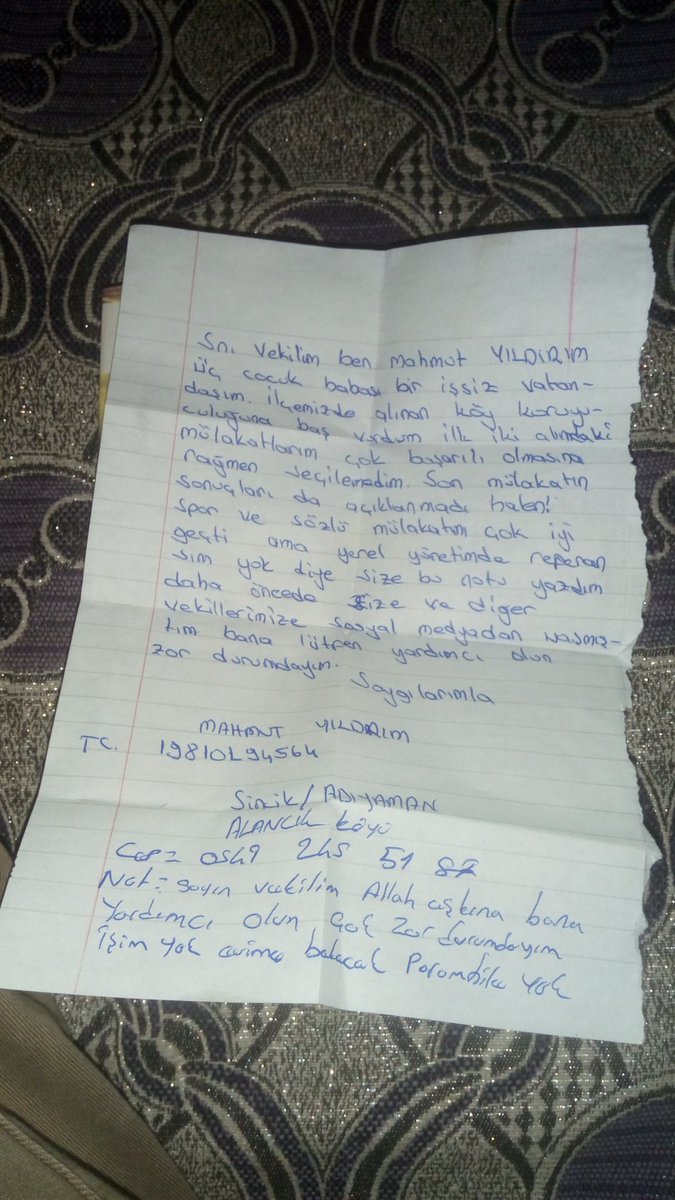 Sn. Vekilim ben Mahmut YILDIRIM
üç çocuk babası bir işsiz vatan-
daşım. İlçemizde alınan köy koruyu-
culuğuna baş vurdum ilk iki alımdaki
mülakatlarım çok başarılı olmasına
rağmen seçilemedim. Son mülakatın
sonuçları da açıklanmadı halen!
spor ve sözlü mülakatım çok iyi
geçti ama yerel yönetimde reperan
sım yok diye size bu notu yazdım
daha öncede size ve diğer
vekillerimize sosyal medyadan yazmış-
tım bana lütfen yardımcı olun
zor durumdayım.
Saygılarımla
MAHMUT YILDIRIM
TC. 19810194564
Sincik/ADIYAMAN
ALANCIK Köyü
Cep= 0549 245 51 82
Not= sayın vekilim Allah aşkına bana
Yardımcı olun çok zor durumdayım
İşim yok evime bakacak Parambile yok